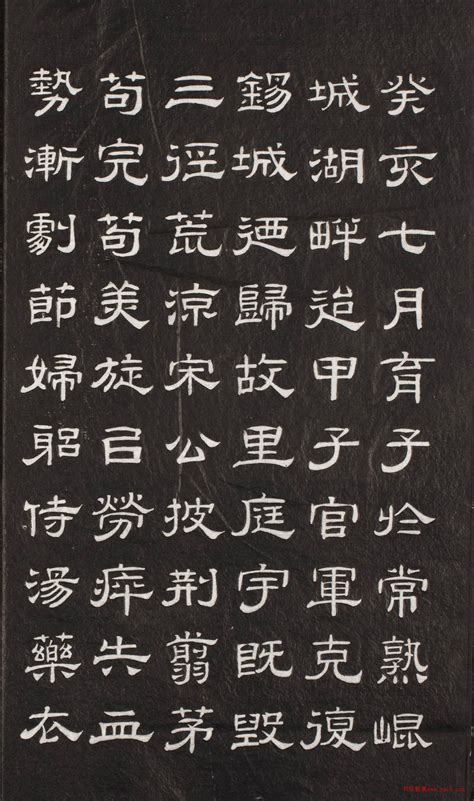 癸亥七月育子於常熟崐
城湖畔迨甲子官軍克復
錫城迺歸故里庭宇既毀
三徑荒涼宋公披荆翦茅
苟完苟美旋㠯勞瘁失血
勢漸劇節婦躳侍湯藥衣